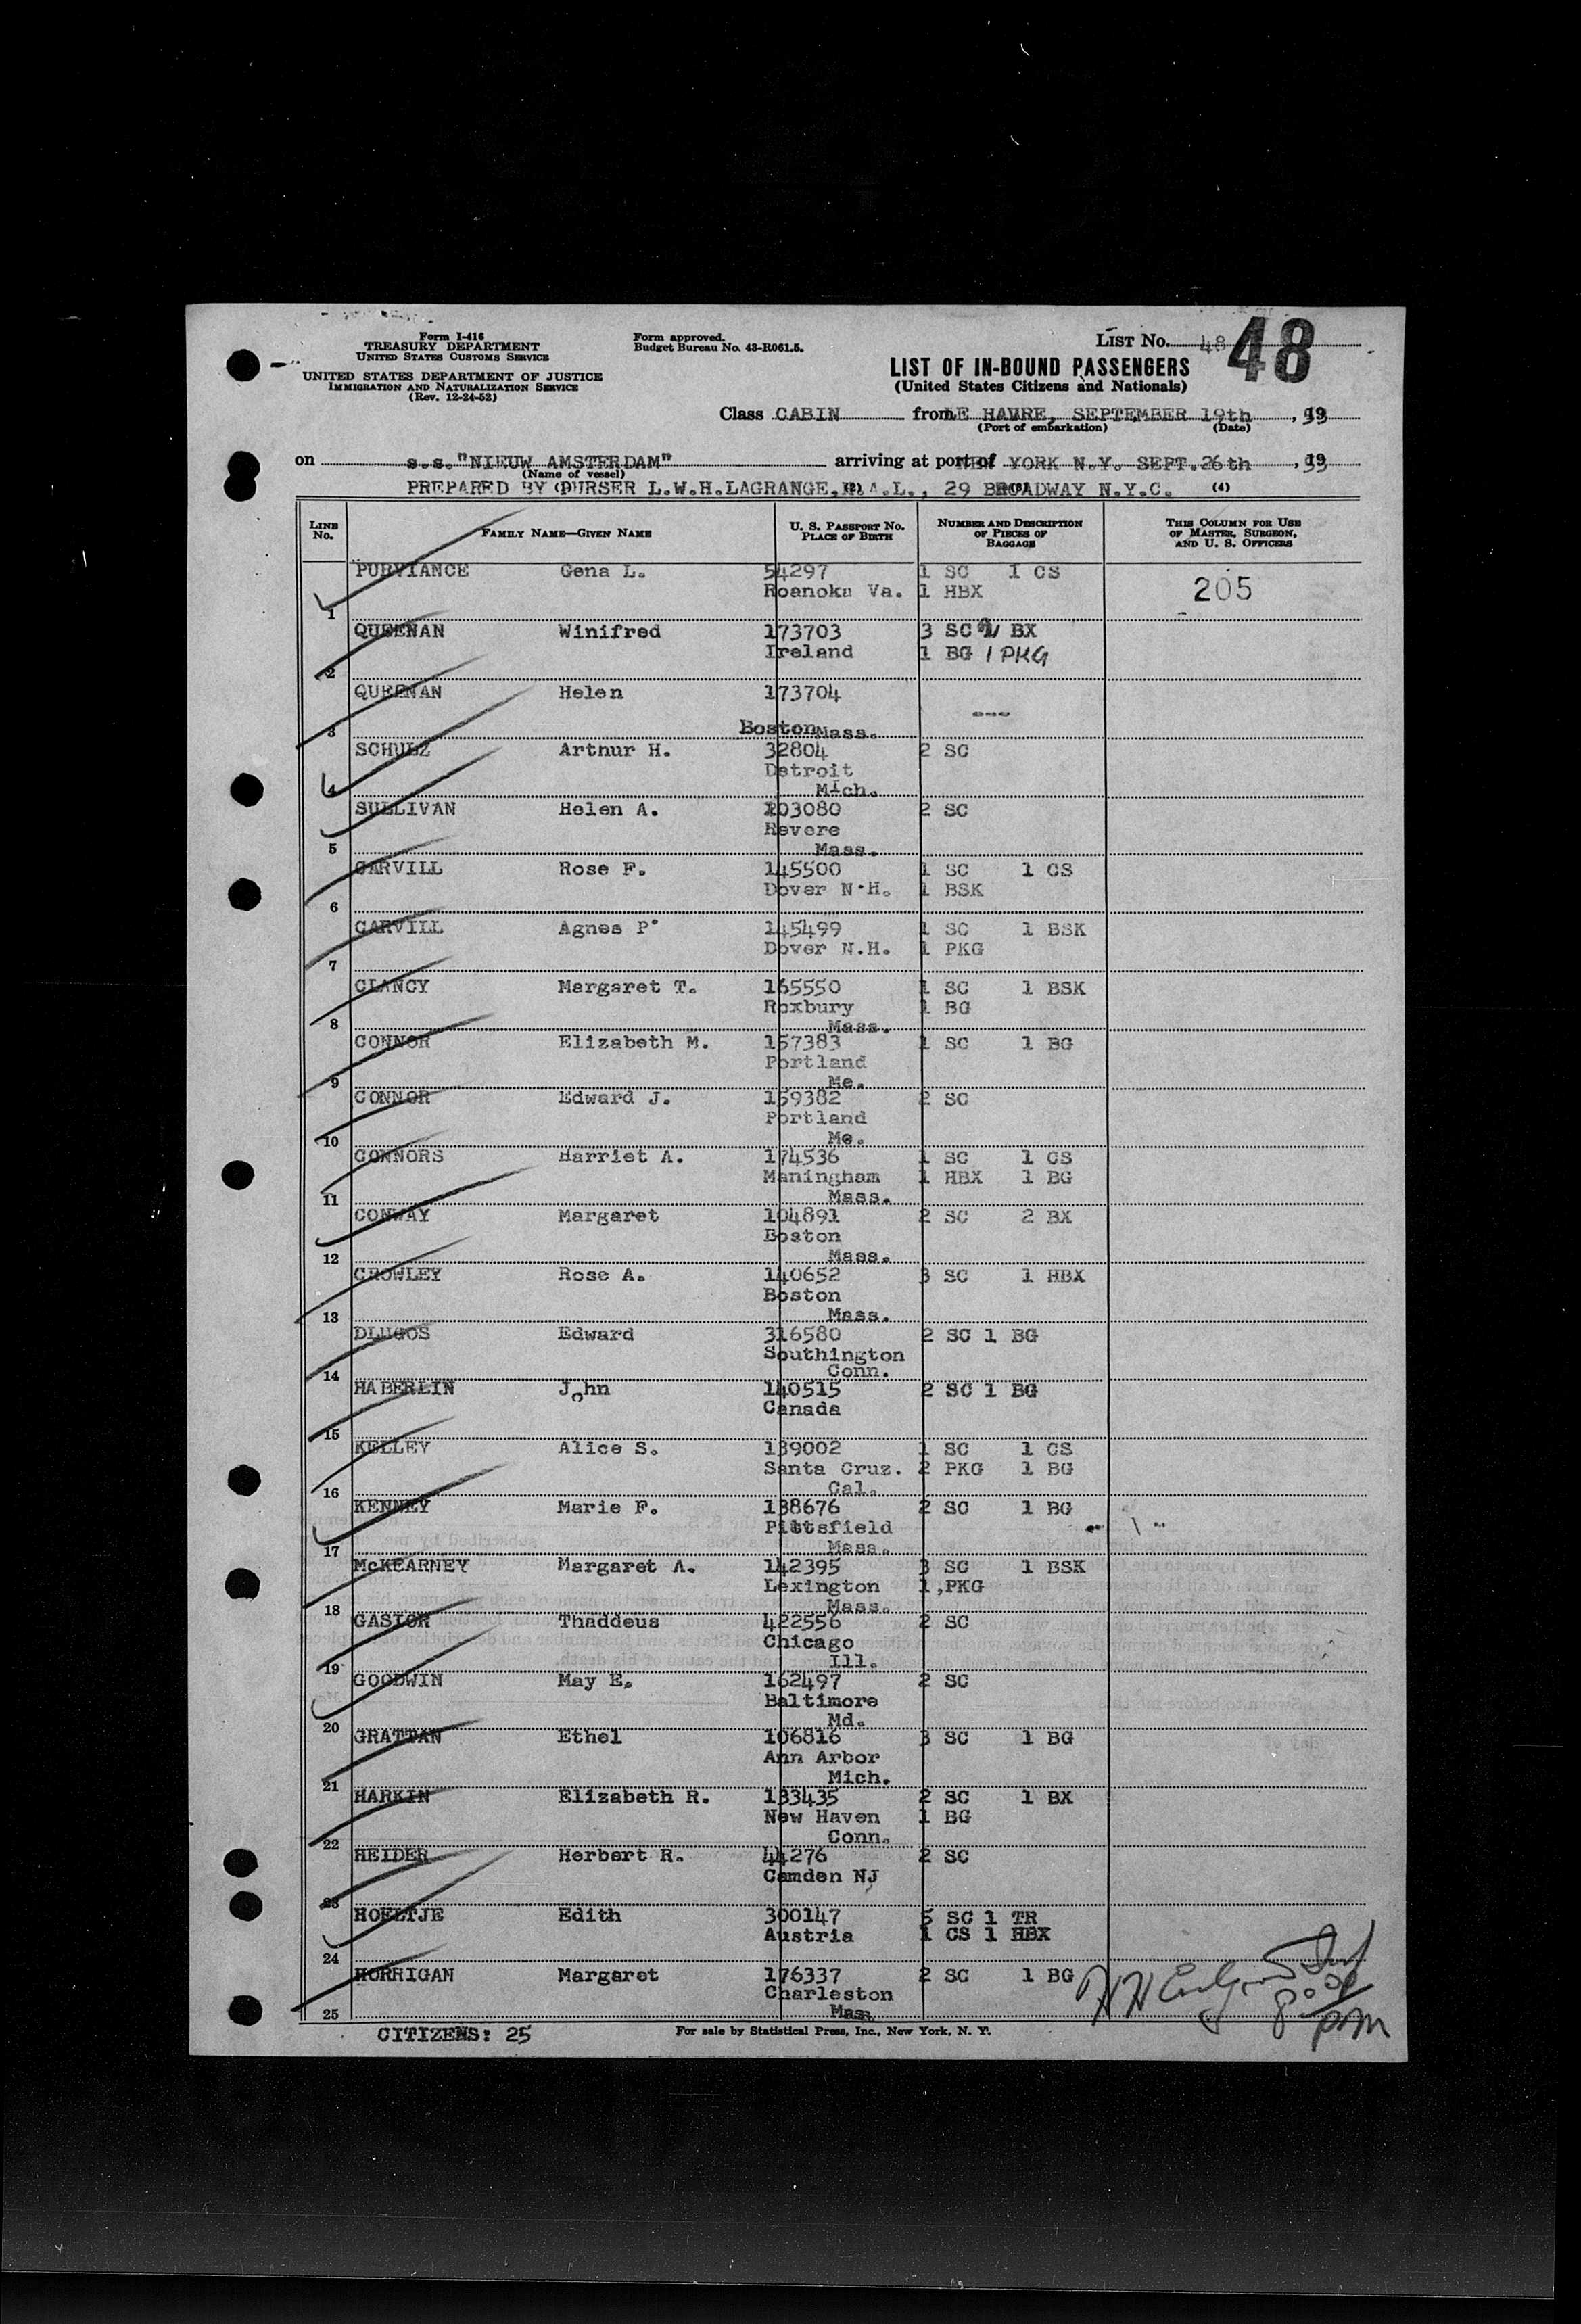 Form I-416
TREASURY DEPARTMENT
UNITED STATES CUSTOMS SERVICE
UNITED STATES DEPARTMENT OF JUSTICE
IMMIGRATION AND NATURALIZATION SERVICE
(Rev. 12-24-52)
Form approved.
Budget Bureau No. 43-R061.5.
LIST No. 48 48
LIST OF IN-BOUND PASSENGERS
(United States Citizens and Nationals)
Class CABIN from LE HAVRE, SEPTEMBER 19th, 
(Port of embarkation) (Date)
on s.s."NIEUW AMSTERDAM" arriving at port of NEW YORK N.Y. SEPT.26th,
(Name of vessel)
PREPARED BY PURSER L.W.H.LAGRANGE, H.A.L., 29 BROADWAY N.Y.C. (4)
LINE No. FAMILY NAME—GIVEN NAME U. S. PASSPORT No. PLACE OF BIRTH NUMBER AND DESCRIPTION OF PIECES OF BAGGAGE THIS COLUMN FOR USE OF MASTER, SURGEON, AND U. S. OFFICERS
PURVIANCE Gena L. 54297 1 SC 1 CS
Roanoke Va. 1 HBX 205
1
QUEENAN Winifred 173703 3 SC BX
Ireland 1 BG 1 PKG
2
QUEENAN Helen 173704
---
3 Boston Mass.
SCHULZ Arthur H. 32804 2 SC
Detroit
4 Mich.
SULLIVAN Helen A. 203080 2 SC
Revere
5 Mass.
CARVILL Rose F. 145500 1 SC 1 CS
Dover N.H. 1 BSK
6
CARVILL Agnes P. 145499 1 SC 1 BSK
Dover N.H. 1 PKG
7
CLANCY Margaret T. 165550 1 SC 1 BSK
Roxbury 1 BG
8 Mass.
CONNOR Elizabeth M. 157383 1 SC 1 BG
Portland
9 Me.
CONNOR Edward J. 159382 2 SC
Portland
10 Me.
CONNORS Harriet A. 174536 1 SC 1 CS
Maningham 1 HBX 1 BG
11 Mass.
CONWAY Margaret 104891 2 SC 2 BX
Boston
12 Mass.
CROWLEY Rose A. 140652 3 SC 1 HBX
Boston
13 Mass.
DLUGOS Edward 316580 2 SC 1 BG
Southington
14 Conn.
HABERLIN John 140515 2 SC 1 BG
Canada
15
KELLEY Alice S. 139002 1 SC 1 CS
Santa Cruz. 2 PKG 1 BG
16 Cal.
KENNEY Marie F. 138676 2 SC 1 BG
Pittsfield
17 Mass.
McKEARNEY Margaret A. 142395 3 SC 1 BSK
Lexington 1,PKG
18 Mass.
GASIOR Thaddeus 422556 2 SC
Chicago
19 Ill.
GOODWIN May E. 162497 2 SC
Baltimore
20 Md.
GRATTAN Ethel 106816 3 SC 1 BG
Ann Arbor
21 Mich.
HARKIN Elizabeth R. 133435 2 SC 1 BX
New Haven 1 BG
22 Conn.
HEIDER Herbert R. 44276 2 SC
Camden NJ
23
HOELTJE Edith 300147 5 SC 1 TR
Austria 1 CS 1 HBX
24
HORRIGAN Margaret 176337 2 SC 1 BG
Charleston
25 Mass
CITIZENS: 25 For sale by Statistical Press, Inc., New York, N. Y.
pm